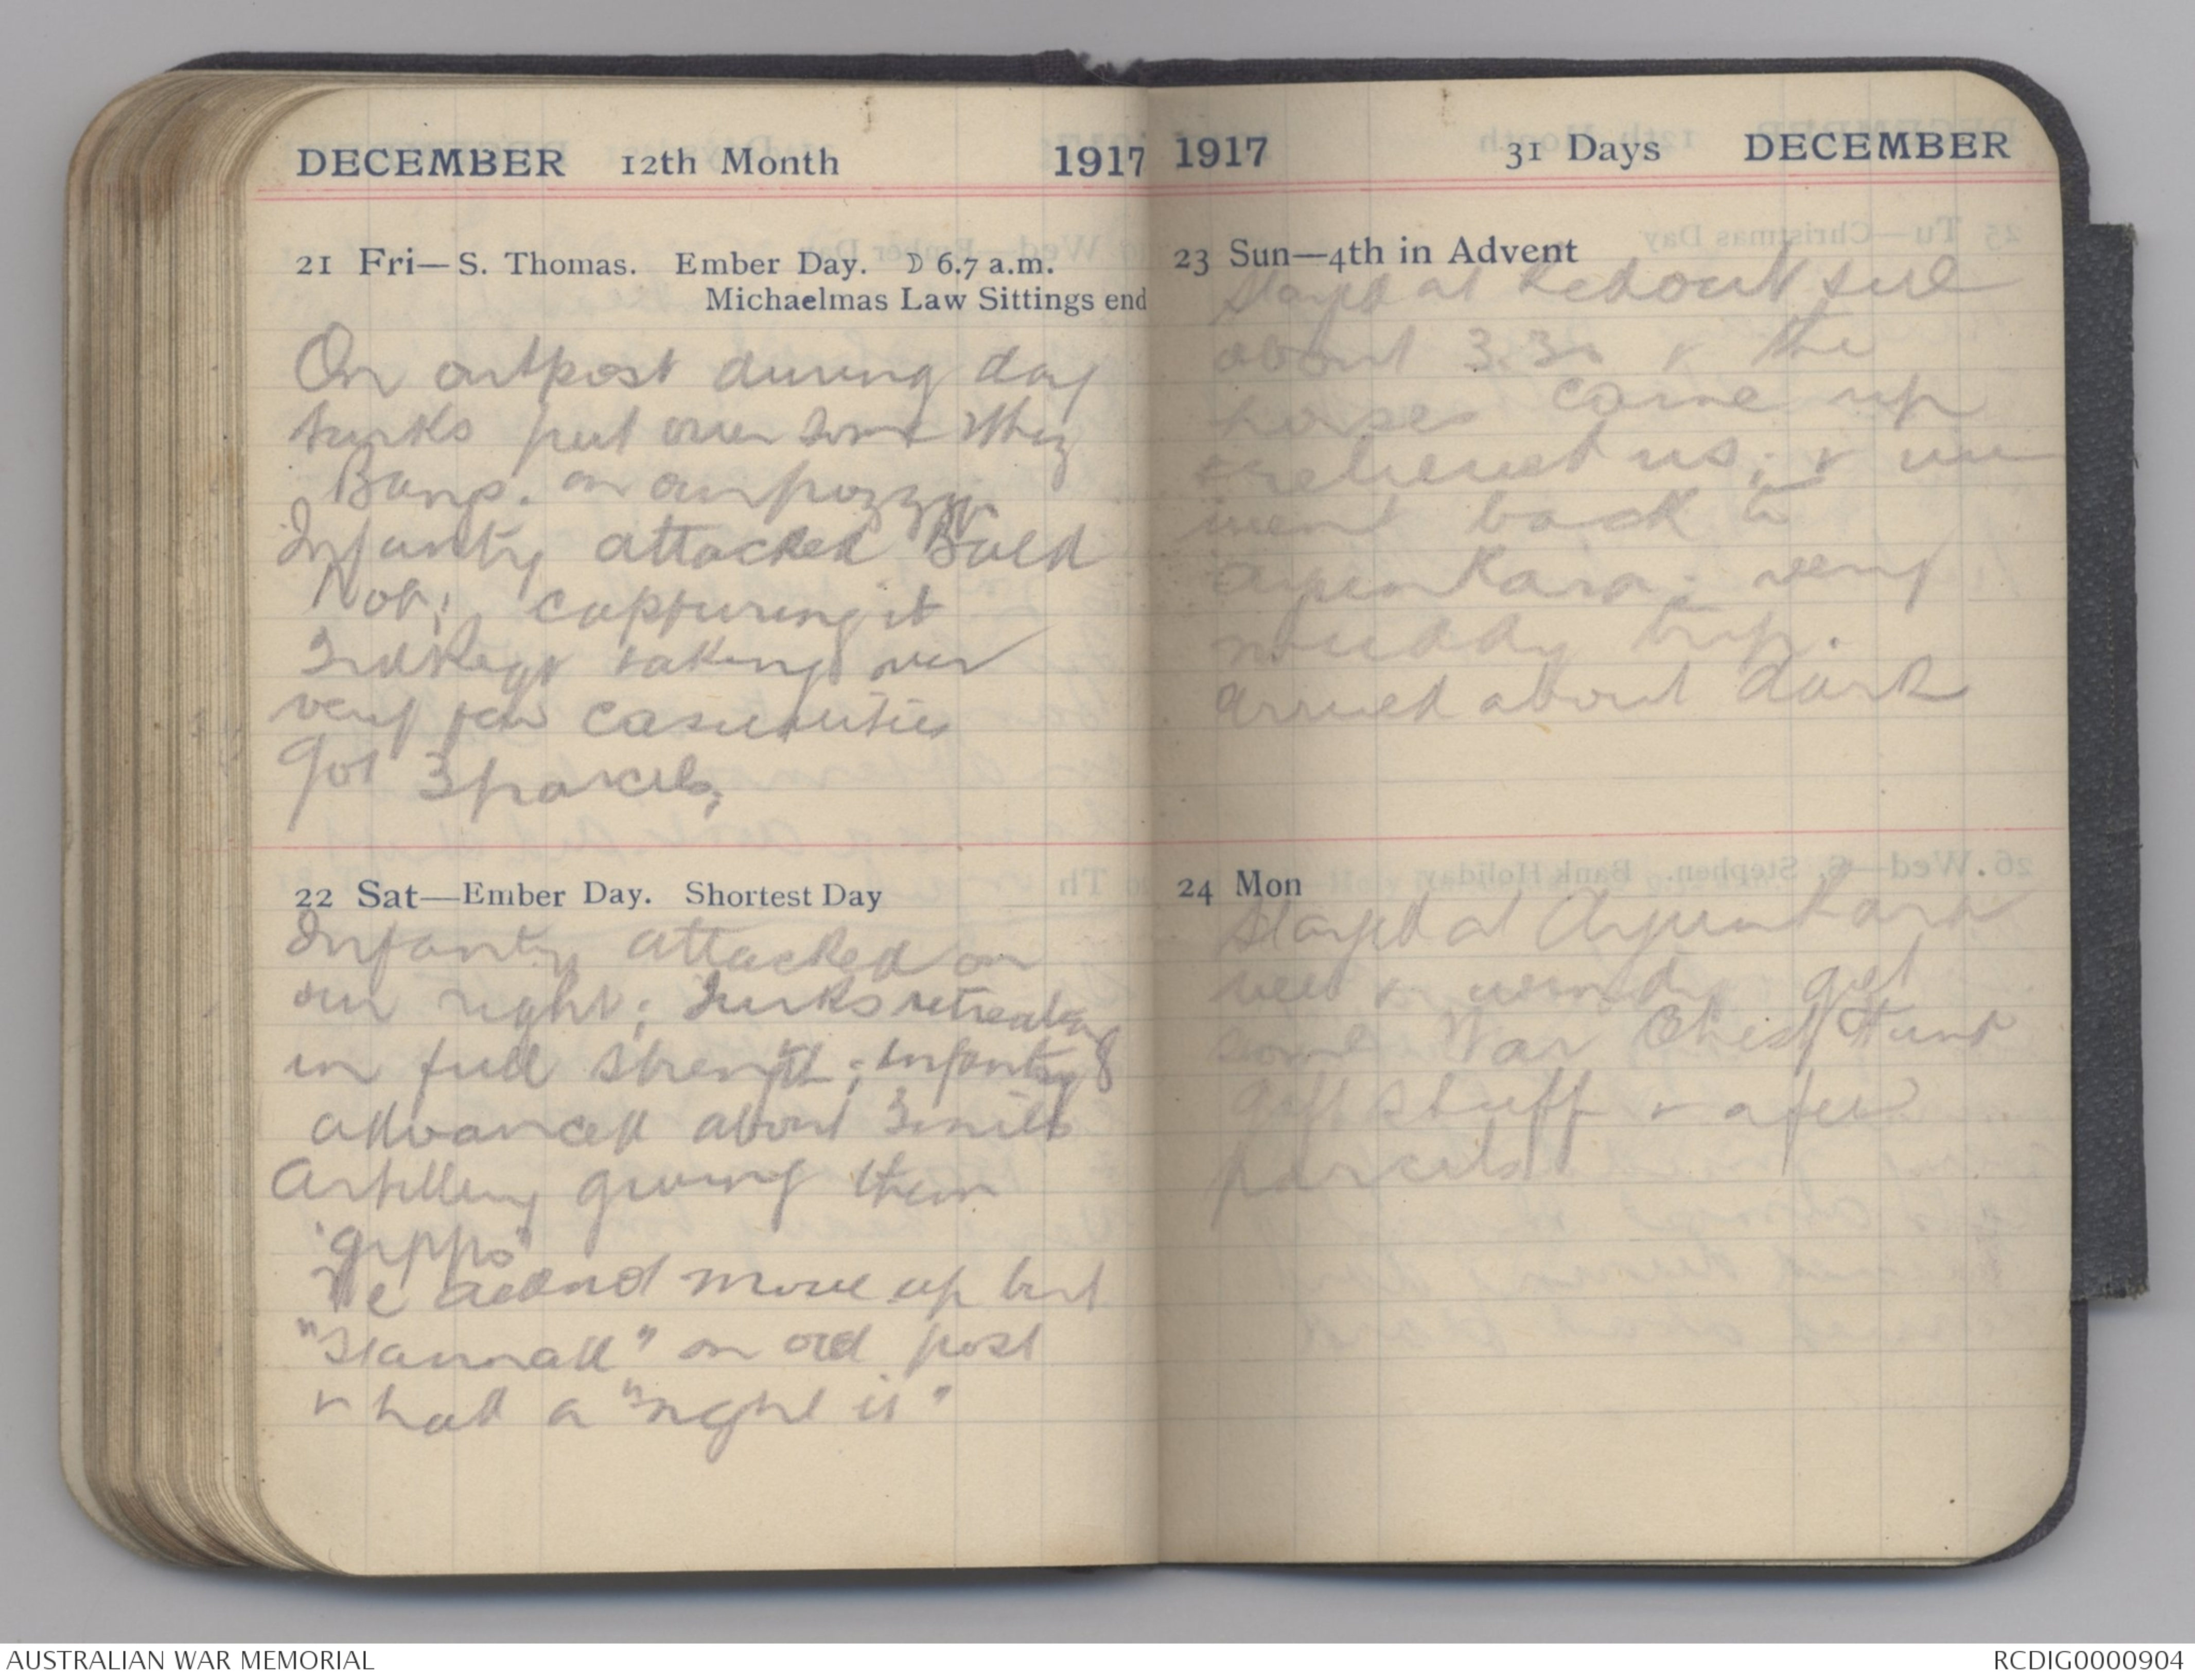 DECEMBER 12th Month 1917
21 Fri—S. Thomas. Ember Day. ☽ 6.7 a.m.
Michaelmas Law Sittings end
On outpost during day
turks put over some Whiz
Bangs. on our pozzy.
Infantry attacked Bald
Nob; capturing it
3rd Regt taking over
very few casualities
Got 3 parcels,
22 Sat—Ember Day. Shortest Day
Infantry attacked on
our right; Turks retreating
in full strength; Infantry
advanced about 3 miles
Artillery giving them
"gippo"
We move up but
"Stannall" on old post
& had a "night it"
1917 31 Days DECEMBER
23 Sun—4th in Advent
Stayed at Redoubt till
about 3.30 & the
horses came up
relieved us; & we
went back to
Ayunkara; very
muddy trip.
Arrived about dark
24 Mon
Stayed at Ayunkara
wet & windy got
some War Chest Fund
gift stuff & a few
parcels
AUSTRALIAN WAR MEMORIAL
RCDIG0000904